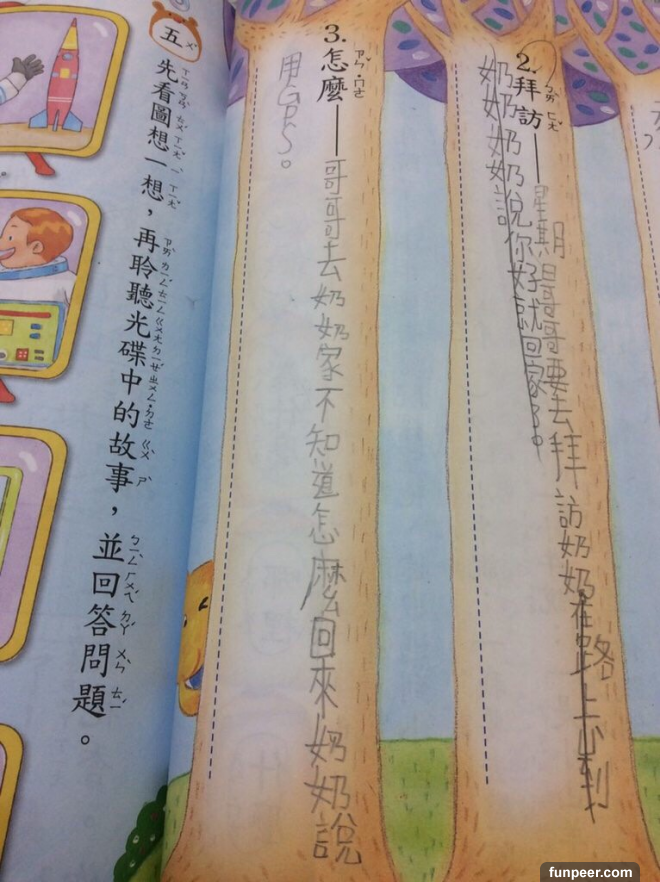 2.拜訪——星期哥哥要去拜訪奶奶在路上到
奶奶奶奶說你好就回家了。
3.怎麼——哥哥去奶奶家不知道怎麼回來奶奶說
用GPS。
五 先看圖想一想，再聆聽光碟中的故事，並回答問題。
funpeer.com